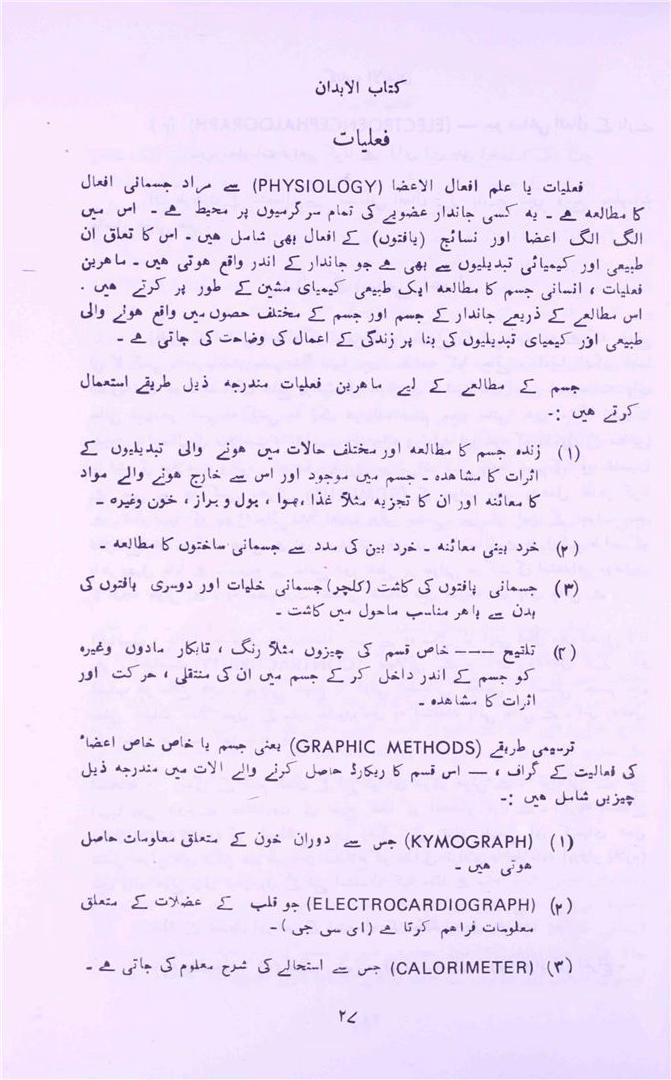 کتاب الابدان
فعلیات
فعلیات یا علم افعال الاعضا (PHYSIOLOGY) سے مراد جسمانی افعال
کا مطالعہ ہے ۔ یہ کسی جاندار عضویے کی تمام سرگرمیوں پر محیط ہے ۔ اس میں
الگ الگ اعضا اور نسائج (بافتوں) کے افعال بھی شامل ہیں ۔ اس کا تعلق ان
طبیعی اور کیمیائی تبدیلیوں سے بھی ہے جو جاندار کے اندر واقع ہوتی ہیں ۔ ماہرین
فعلیات ، انسانی جسم کا مطالعہ ایک طبیعی کیمیای مشین کے طور پر کرتے ہیں .
اس مطالعے کے ذریعے جاندار کے جسم اور جسم کے مختلف حصوں میں واقع ہونے والی
طبیعی اور کیمیای تبدیلیوں کی بنا پر زندگی کے اعمال کی وضاحت کی جاتی ہے ۔
جسم کے مطالعے کے لیے ماہرین فعلیات مندرجہ ذیل طریقے استعمال
کرتے ہیں :۔
(۱) زندہ جسم کا مطالعہ اور مختلف حالات میں ہونے والی تبدیلیوں کے
اثرات کا مشاہدہ ۔ جسم میں موجود اور اس سے خارج ہونے والے مواد
کا معائنہ اور ان کا تجزیہ مثلاً غذا ، ہوا ، بول و براز ، خون وغیرہ ۔
(۲) خرد بینی معائنہ ۔ خرد بین کی مدد سے جسمانی ساختوں کا مطالعہ ۔
(۳) جسمانی بافتوں کی کاشت (کلچر) جسمانی خلیات اور دوسری بافتوں کی
بدن سے باہر مناسب ماحول میں کاشت ۔
(۴) تلقیح ـــ خاص قسم کی چیزوں مثلاً رنگ ، تابکار مادوں وغیرہ
کو جسم کے اندر داخل کر کے جسم میں ان کی منتقلی ، حرکت اور
اثرات کا مشاہدہ ۔
ترسیمی طریقے (GRAPHIC METHODS) یعنی جسم یا خاص خاص اعضاً
کی فعالیت کے گراف ، ـــ اس قسم کا ریکارڈ حاصل کرنے والے الات میں مندرجہ ذیل
چیزیں شامل ہیں :۔
(۱) (KYMOGRAPH) جس سے دوران خون کے متعلق معاومات حاصل
ہوتی ہیں ۔
(۲) (ELECTROCARDIOGRAPH) جو قلب کے عضلات کے متعلق
معلومات فراہم کرتا ہے (ای سی جی)۔
(۳) (CALORIMETER) جس سے استحالے کی شرح معلوم کی جاتی ہے ۔
۲۷